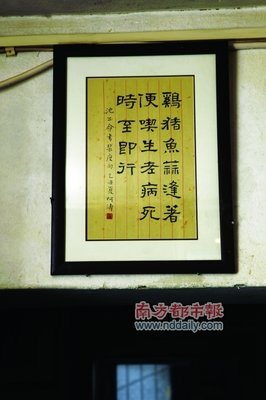 雞猪魚蒜逢著
便喫生老病死
時至即行
沈公命書裴度句
南方都市報
www.nddaily.com